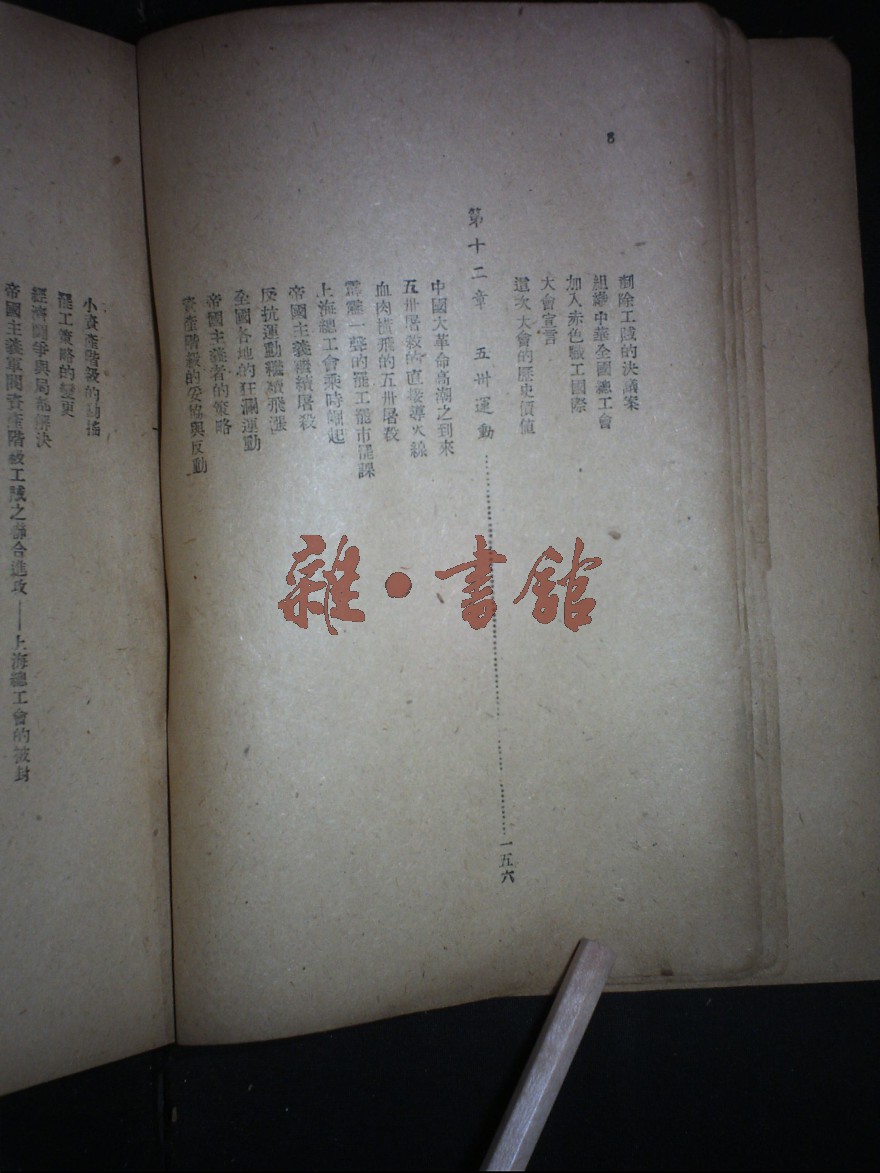 8
剷除工賊的決議案
組織中華全國總工會
加入赤色職工國際
大會宣言
這次大會的歷史價值
第十二章 五卅運動……一五六
中國大革命高潮之到來
五卅屠殺的直接導火線
血肉橫飛的五卅屠殺
霹靂一聲的罷工罷市罷課
上海總工會乘時崛起
帝國主義繼續屠殺
反抗運動繼續飛漲
全國各地的狂瀾運動
帝國主義者的策略
資產階級的妥協與反動
小資產階級的動搖
罷工策略的變更
經濟鬭爭與局部解決
帝國主義軍閥資產階級工賊之聯合進攻——上海總工會的被封
雜·書館